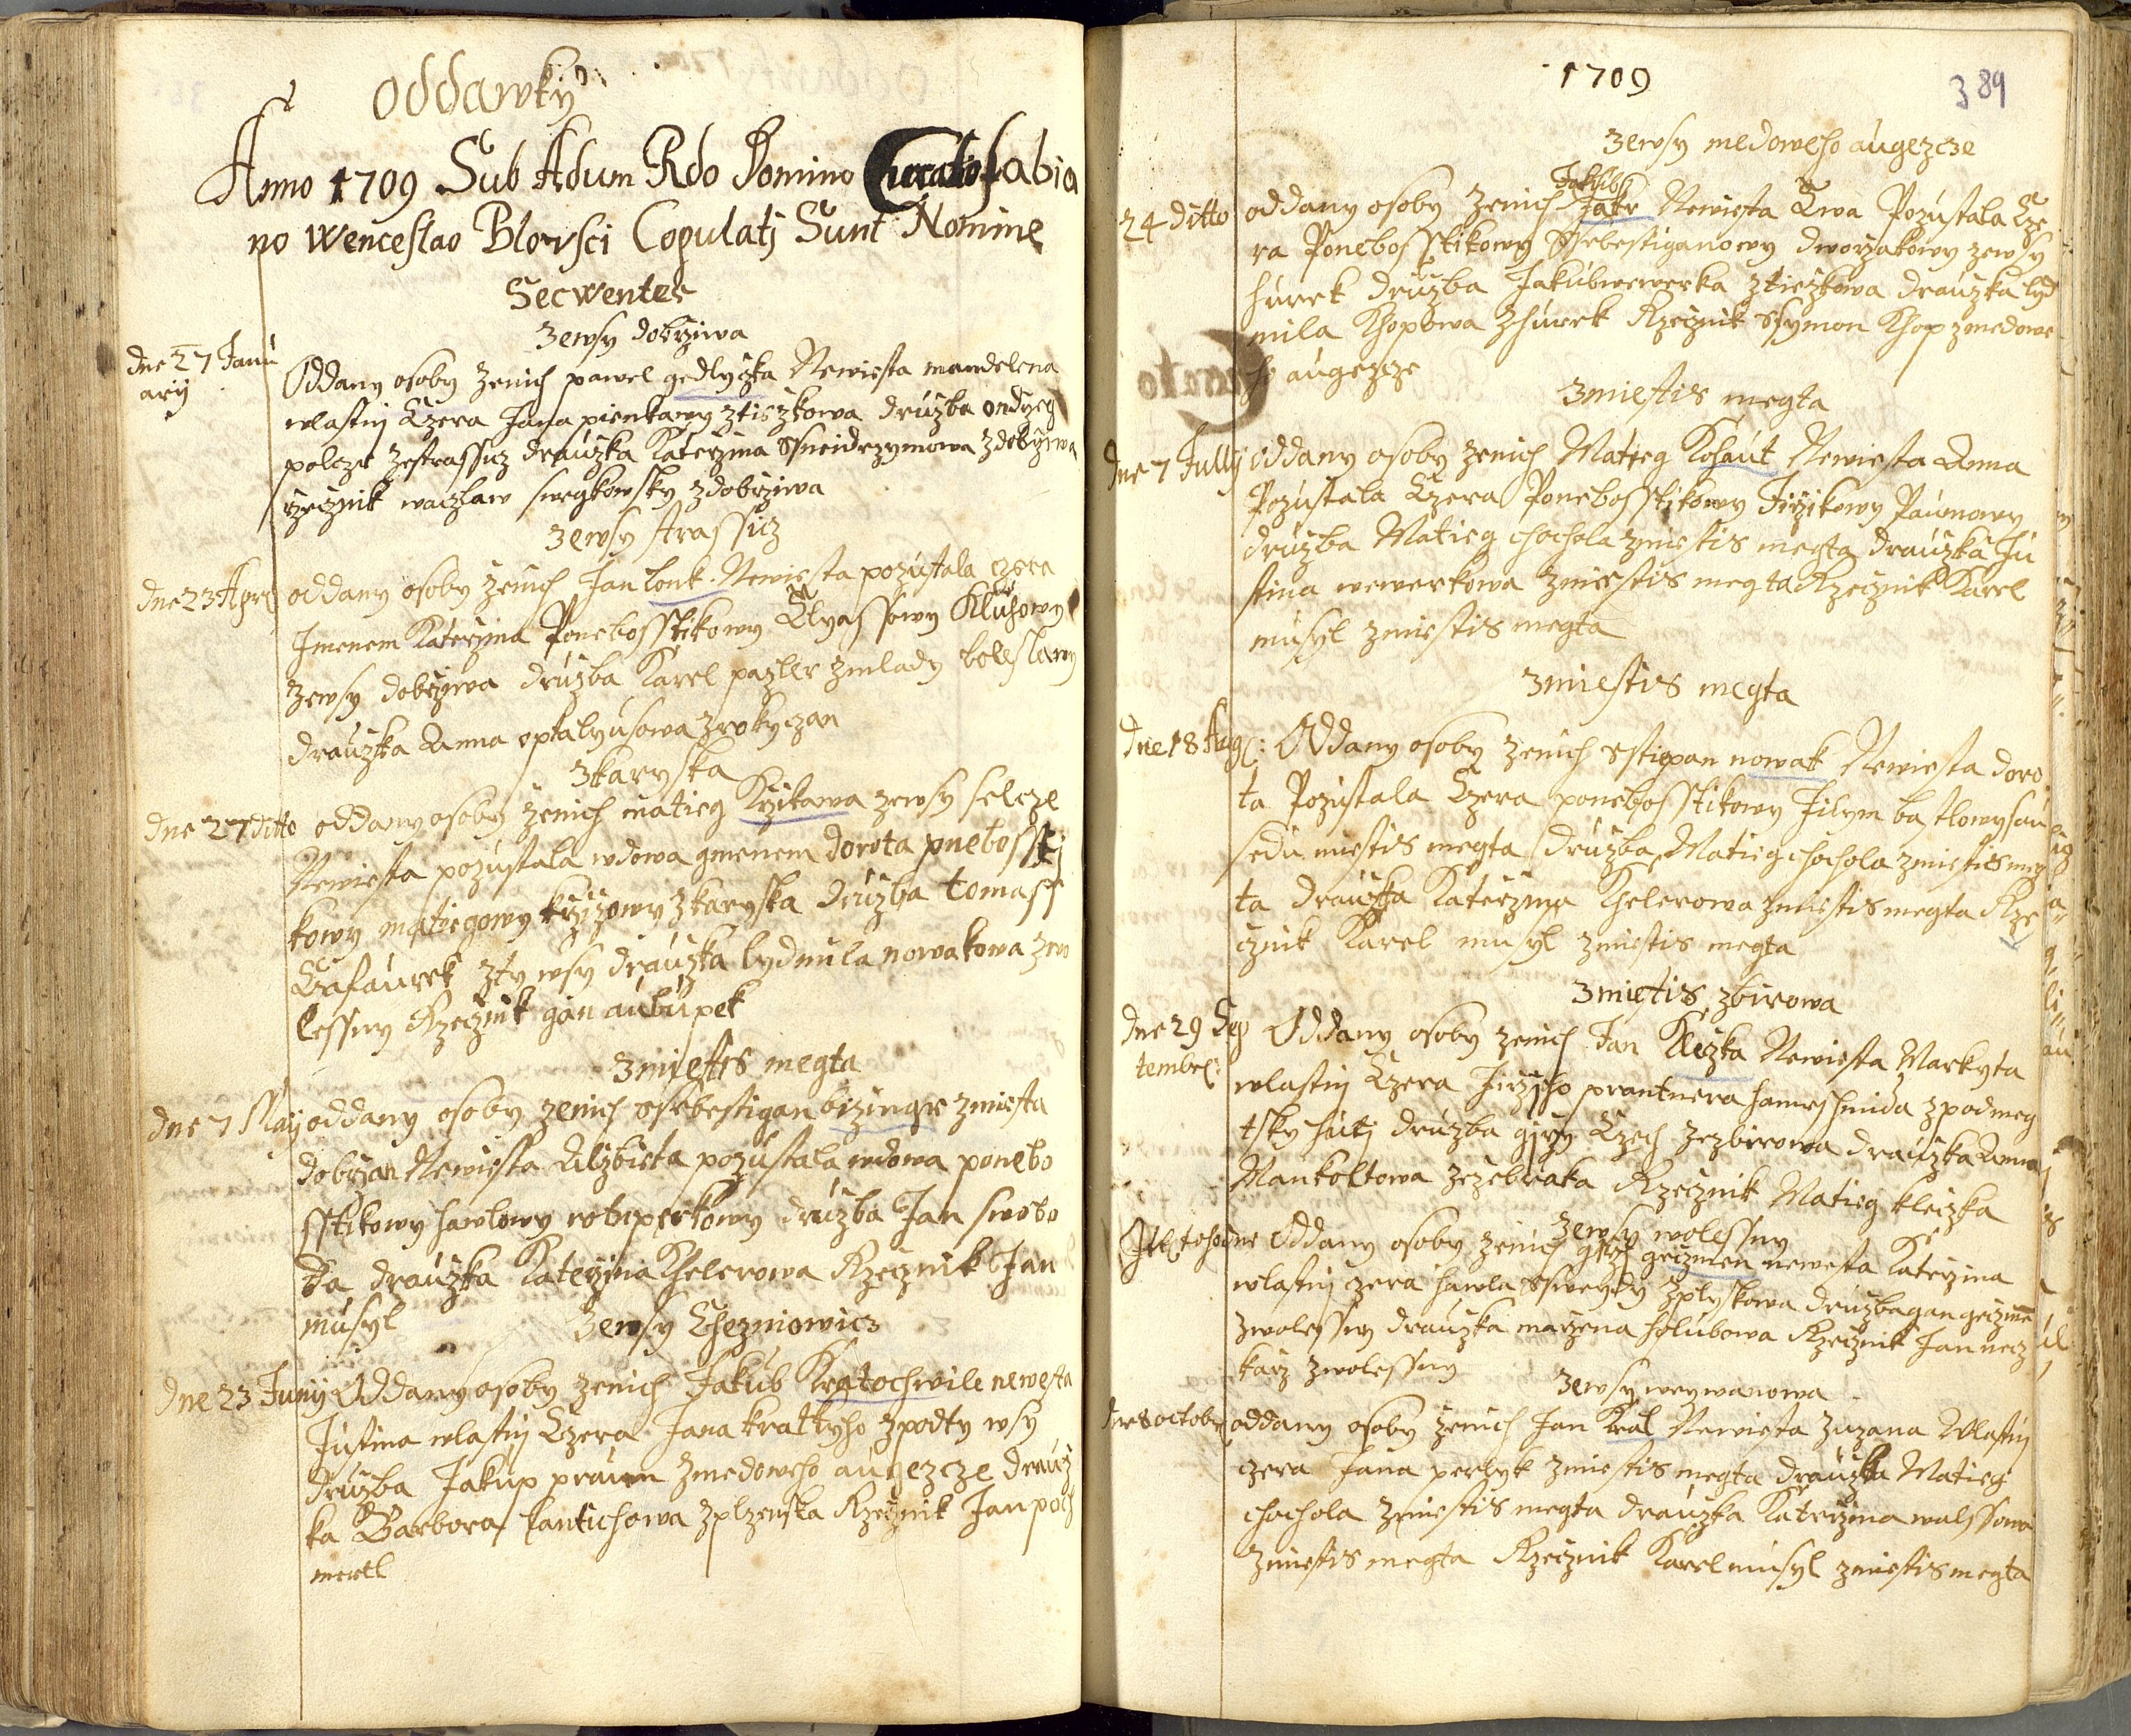 oddawky
Anno 1709 Sub Adum Rdo Domino Curato fabia
no Wenceslao Blovsci Copulatj Sunt Nomine
Secwentes
zewsy dobrziwa
dne 27 Janu
arij
Oddany osoby zenich pawel gedlyczka Newiesta mandelena
wlastnj Czera Jana pienkawy zticzkowa druzba ondrzeg
polczr zestrassicz drauzka Katerzina Ssneidrzymowa zdobrziwa
rzecznik waczlaw swegkowsky zdobrziwa
zewsy strassicz
dne 23 Apri
oddany osoby zenich Jan lonk. Newiesta pozustala czera
Jmenem Katerzina Ponebosstikowy Elyassowy Kluhowy
zewsy dobrziwa druzba Karel pazler zmlady boleslawy
drauzka Anna optalyusowa zrokyczan
zkaryska
dne 27 ditto
oddany osoby zenich matieg Krzikawa zewsy selcze
Newiesta pozustala wdowa gmenem dorota pnebossti
kowy matiegowy krzizowy zkaryska druzba tomass
Czafaurek zty wsy drauzka lydmila nowakowa zwo
lessny Rzecznik gan aubupek
zmiestis megta
dne 7 Maij
oddany osoby zenich Ssebestigan bizingr zmiesta
dobrzan Newiesta Alzbieta pozustala wdowa ponebo
sstikowy hawlowy rotuperkowy druzba Jan swobo
da drauzka Katerzina Khelerowa Rzecznik Jan
musyl
zewsy Cheznowicz
dne 23 Junij
Oddany osoby zenich Jakub Kratochwile newesta
Justina wlastnj Czera Jana krattkyho zpodty wsy
druzba Jakup praum zmedoweho augezcze drauz
ka Barbora kantichowa zplzenska Rzecznik Jan poch
mertl
1709
389
zewsy medoweho augezcze
24 ditto
oddany osoby zenich Jakub Newiesta Ewa Pozustala Cze
ra Ponebosstikowy Ssebestiganowy dworzakowy zewsy
hurek druzba Jakub wewerka ztiezkowa drauzka lyd
mila Khopowa zhurek Rzecznik Ssymon Khop zmedowe
ho augezcze
zmiestis megta
dne 7 Jullij
oddany osoby zenich Matieg Kohaut Newiesta Anna
Pozustala Czera Ponebosstikowy Jirzikowy Paumowy
druzba Matieg chochola zmiestis megta drauzka Ju
stina wewerkowa zmiestis megta Rzecznik Karel
musyl zmiestis megta
zmiestis megta
dne 18 Aug:
Oddany osoby zenich Sstiepan nowak Newiesta doro
ta Pozustala Czera ponebosstikowy Jilym bastlowy sau
sedu miestis megta druzba Matieg chochola zmiestis meg
ta drauzka Katerzina Khelerowa zmiestis megta Rze
cznik Karel musyl zmiestis megta
zmietis zbirowa
dne 29 Sep
tembr:
Oddany osoby zenich Jan Kleczka Newiesta Markyta
wlastnj Czera Jirzjho prantnera hamrsshmida zpodmeg
tsky hutj druzba girzy Czech zezbirowa drauzka Anna
Mankoltowa zezebraka Rzecznik Matieg kleczka
zewsy wolessny
Jtl tohodne
Oddany osoby zenich girzj geczmen newesta Katerzina
wlastnj czera hawla Ssweydy zplyskowa druzba gan geczme
zwolessny drauzka marzena holubowa Rzecznik Jan necz
karz zwolessny
zewsy weywanowa
dne 8 octobr
oddany osoby zenich Jan Kral Newiesta Zuzana Wlastnj
czera Jana perlyk zmiestis megta drauzba Matieg
chochola zmiestis megta drauzka Katerzina walssowa
zmiestis megta Rzecznik Karel musyl zmiestis megta